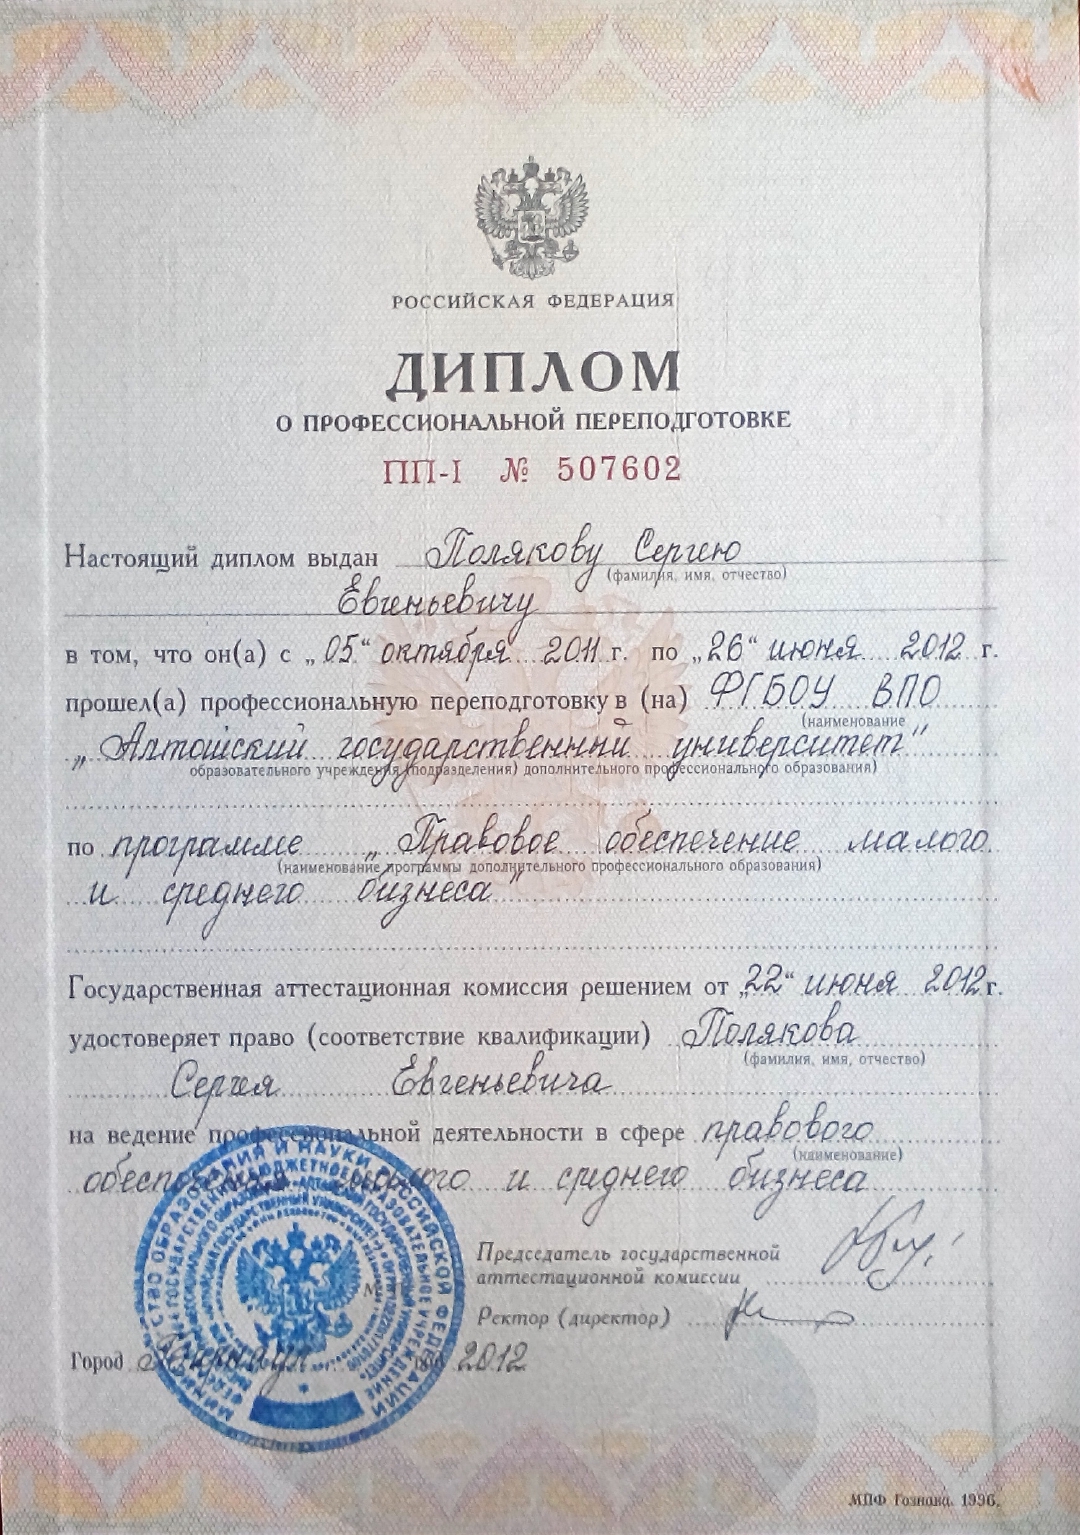 РОССИЙСКАЯ ФЕДЕРАЦИЯ
ДИПЛОМ
О ПРОФЕССИОНАЛЬНОЙ ПЕРЕПОДГОТОВКЕ
ПП-I № 507602
Настоящий диплом выдан Полякову Сергею
(фамилия, имя, отчество)
Евгеньевичу
в том, что он(а) с „05“ октября 2011 г. по „26“ июня 2012 г.
прошел(а) профессиональную переподготовку в (на) ФГБОУ ВПО
(наименование
„Алтайский государственный университет"
образовательного учреждения (подразделения) дополнительного профессионального образования)
по программе „Правовое обеспечение малого
(наименование программы дополнительного профессионального образования)
и среднего бизнеса"
Государственная аттестационная комиссия решением от „22“ июня 2012 г.
удостоверяет право (соответствие квалификации) Полякова
(фамилия, имя, отчество)
Сергея Евгеньевича
на ведение профессиональной деятельности в сфере правового
(наименование)
обеспечения малого и среднего бизнеса
Председатель государственной
аттестационной комиссии
Ректор (директор)
Город Барнаул год 2012
МИНИСТЕРСТВО ОБРАЗОВАНИЯ И НАУКИ РОССИЙСКОЙ ФЕДЕРАЦИИ
МПФ Гознака. 1996.